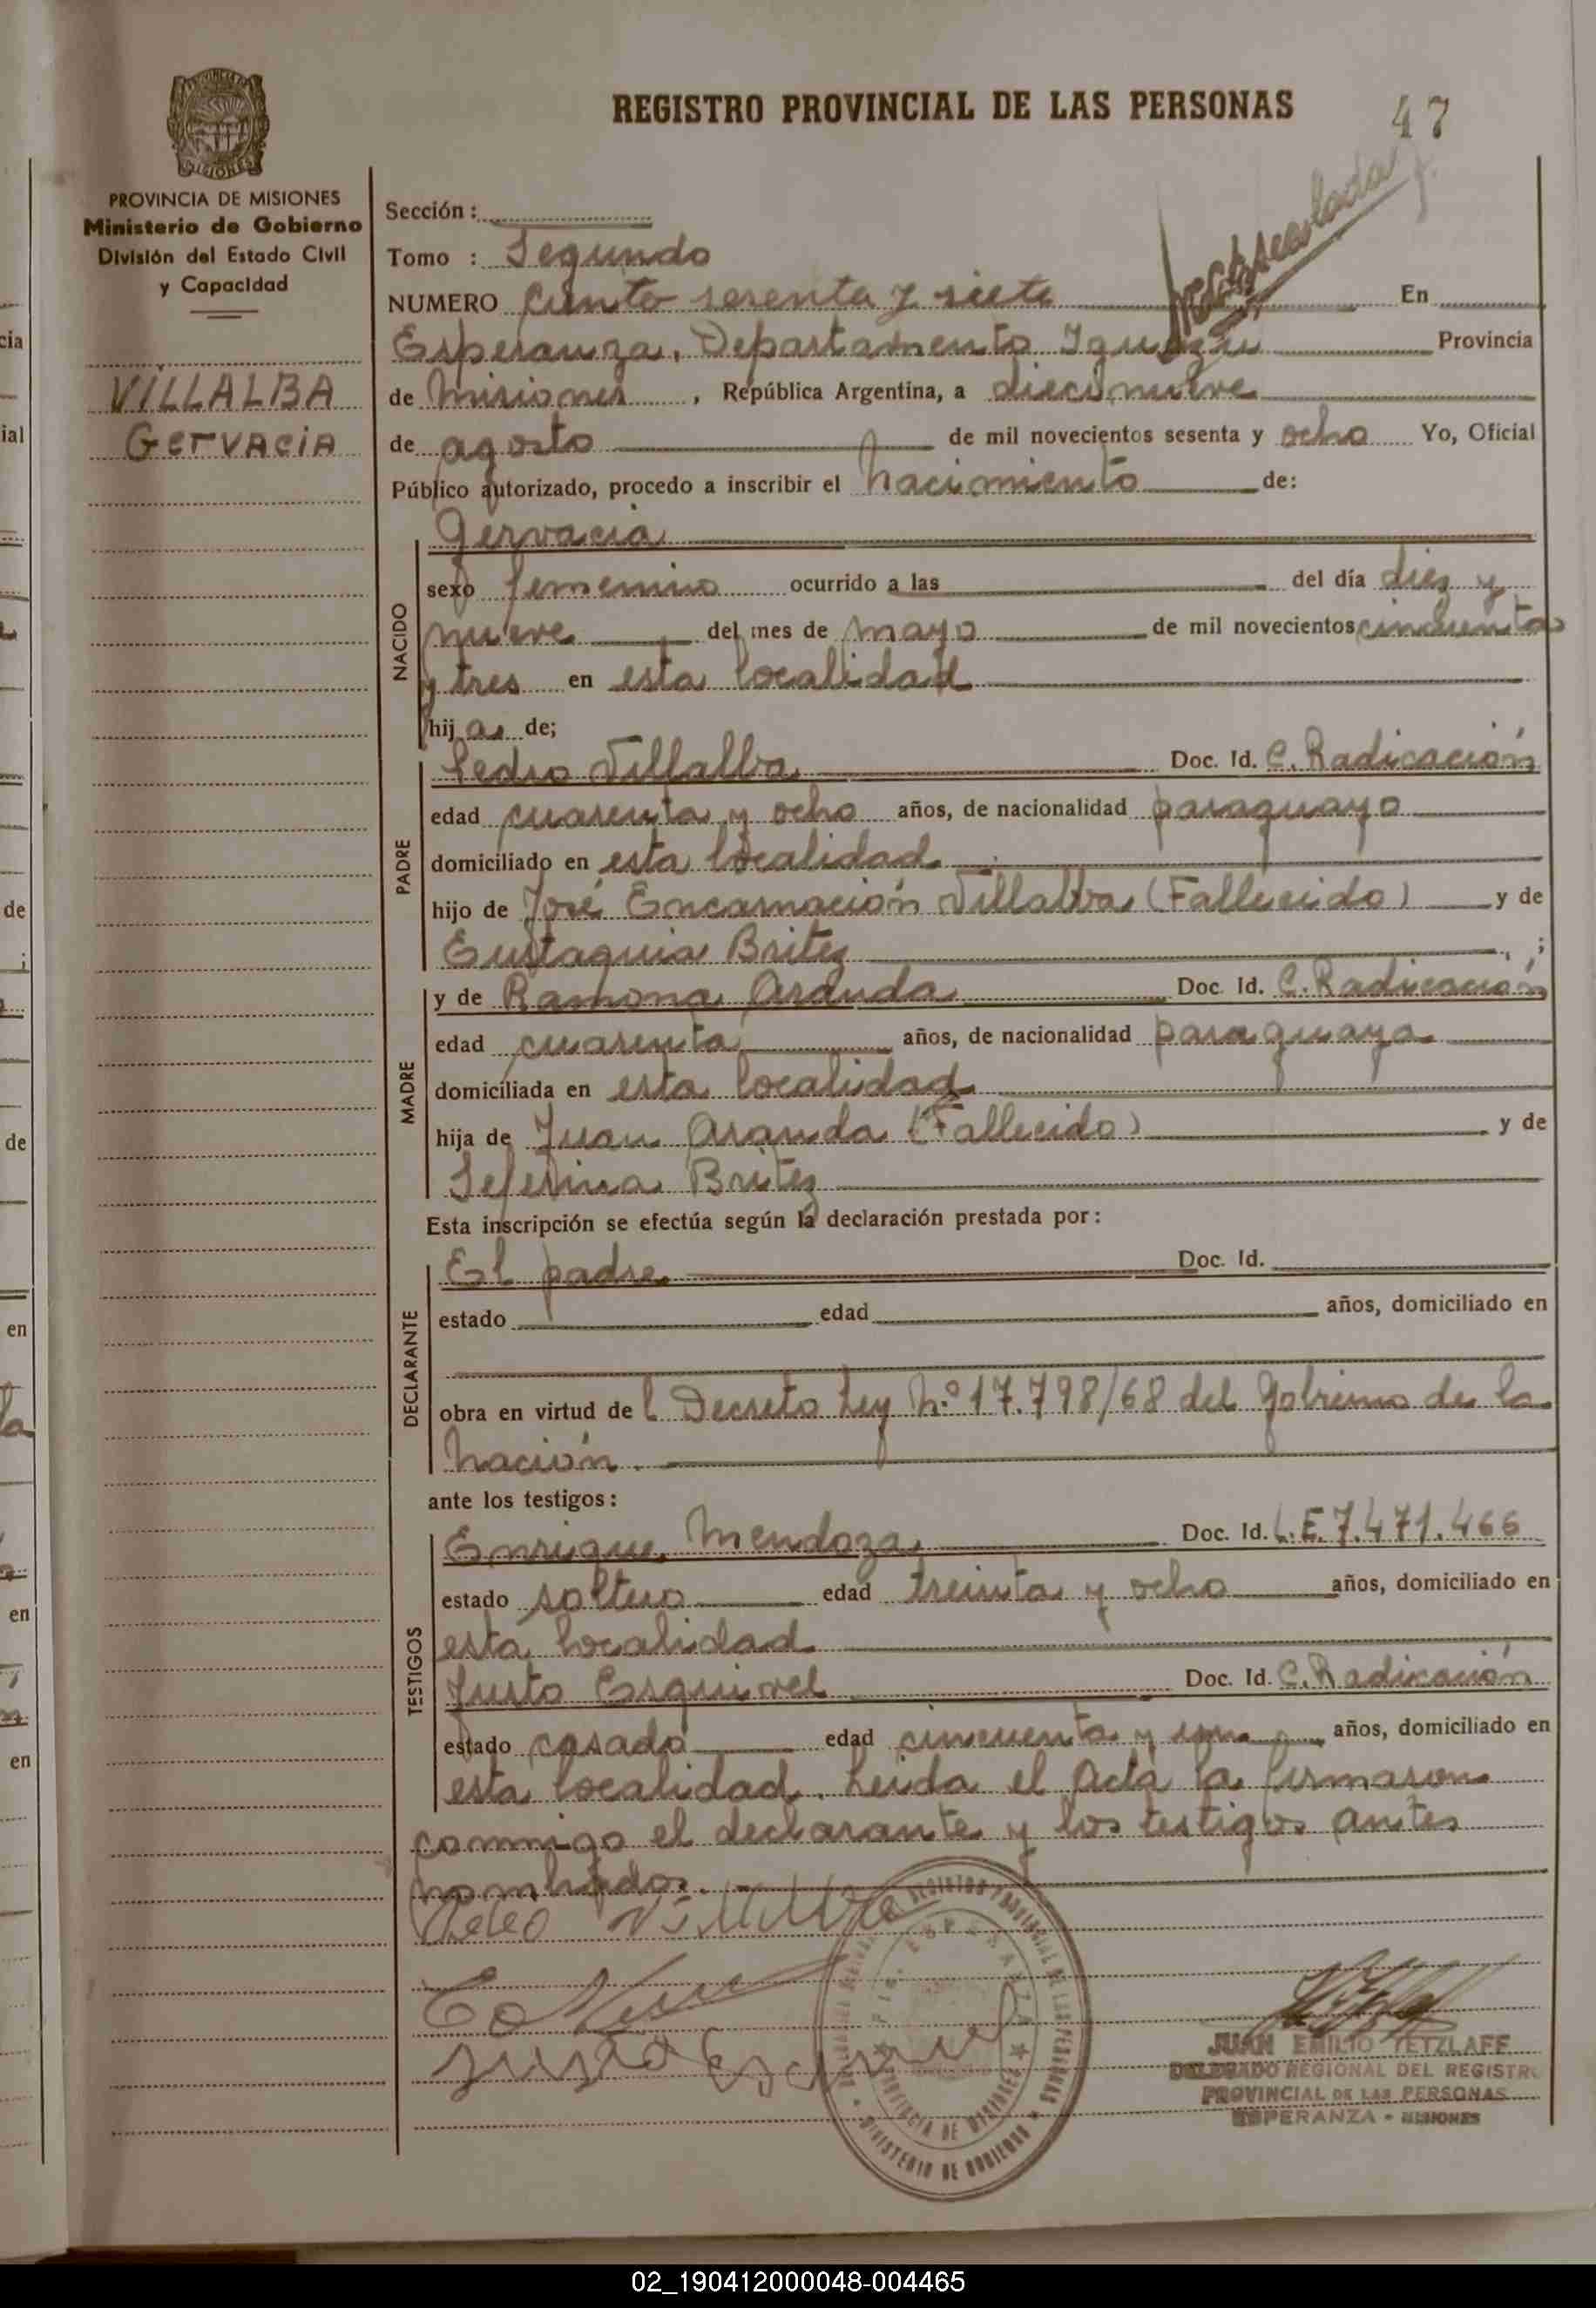 REGISTRO PROVINCIAL DE LAS PERSONAS
47
PROVINCIA DE MISIONES
Ministerio de Gobierno
División del Estado Civil
y Capacidad
VILLALBA
GERVACIA
Sección :
Tomo : Segundo
NUMERO ciento sesenta y siete En
Esperanza, Departamento Iguazú Provincia
de Misiones, República Argentina, a diecinueve
de agosto de mil novecientos sesenta y ocho Yo, Oficial
Público autorizado, procedo a inscribir el nacimiento de:
NACIDO
Gervacia
sexo femenino ocurrido a las del día diez y
nueve del mes de mayo de mil novecientos cincuenta
y tres en esta localidad
hija de;
PADRE
Pedro Villalba Doc. Id. C. Radicación
edad cuarenta y ocho años, de nacionalidad paraguayo
domiciliado en esta localidad
hijo de José Encarnación Villalba (Fallecido) y de
Eustaquia Britez ;
MADRE
y de Ramona Aranda Doc. Id. C. Radicación
edad cuarenta años, de nacionalidad paraguaya
domiciliada en esta localidad
hija de Juan Aranda (Fallecido) y de
Seferina Britez
Esta inscripción se efectúa según la declaración prestada por:
DECLARANTE
El padre Doc. Id.
estado edad años, domiciliado en
obra en virtud del Decreto Ley N.º 17.798/68 del Gobierno de la
Nación.
ante los testigos:
TESTIGOS
Enrique Mendoza Doc. Id. L.E. 7.471.466
estado soltero edad treinta y ocho años, domiciliado en
esta localidad
Justo Esquivel Doc. Id. C. Radicación
estado casado edad cincuenta y un años, domiciliado en
esta localidad. Leida el Acta la firmaron
conmigo el declarante y los testigos antes
nombrados.
JUAN EMILIO TETZLAFF
DELEGADO REGIONAL DEL REGISTRO
PROVINCIAL DE LAS PERSONAS
ESPERANZA - MISIONES
PROVINCIA DE MISIONES
MINISTERIO DE GOBIERNO
02_190412000048-004465